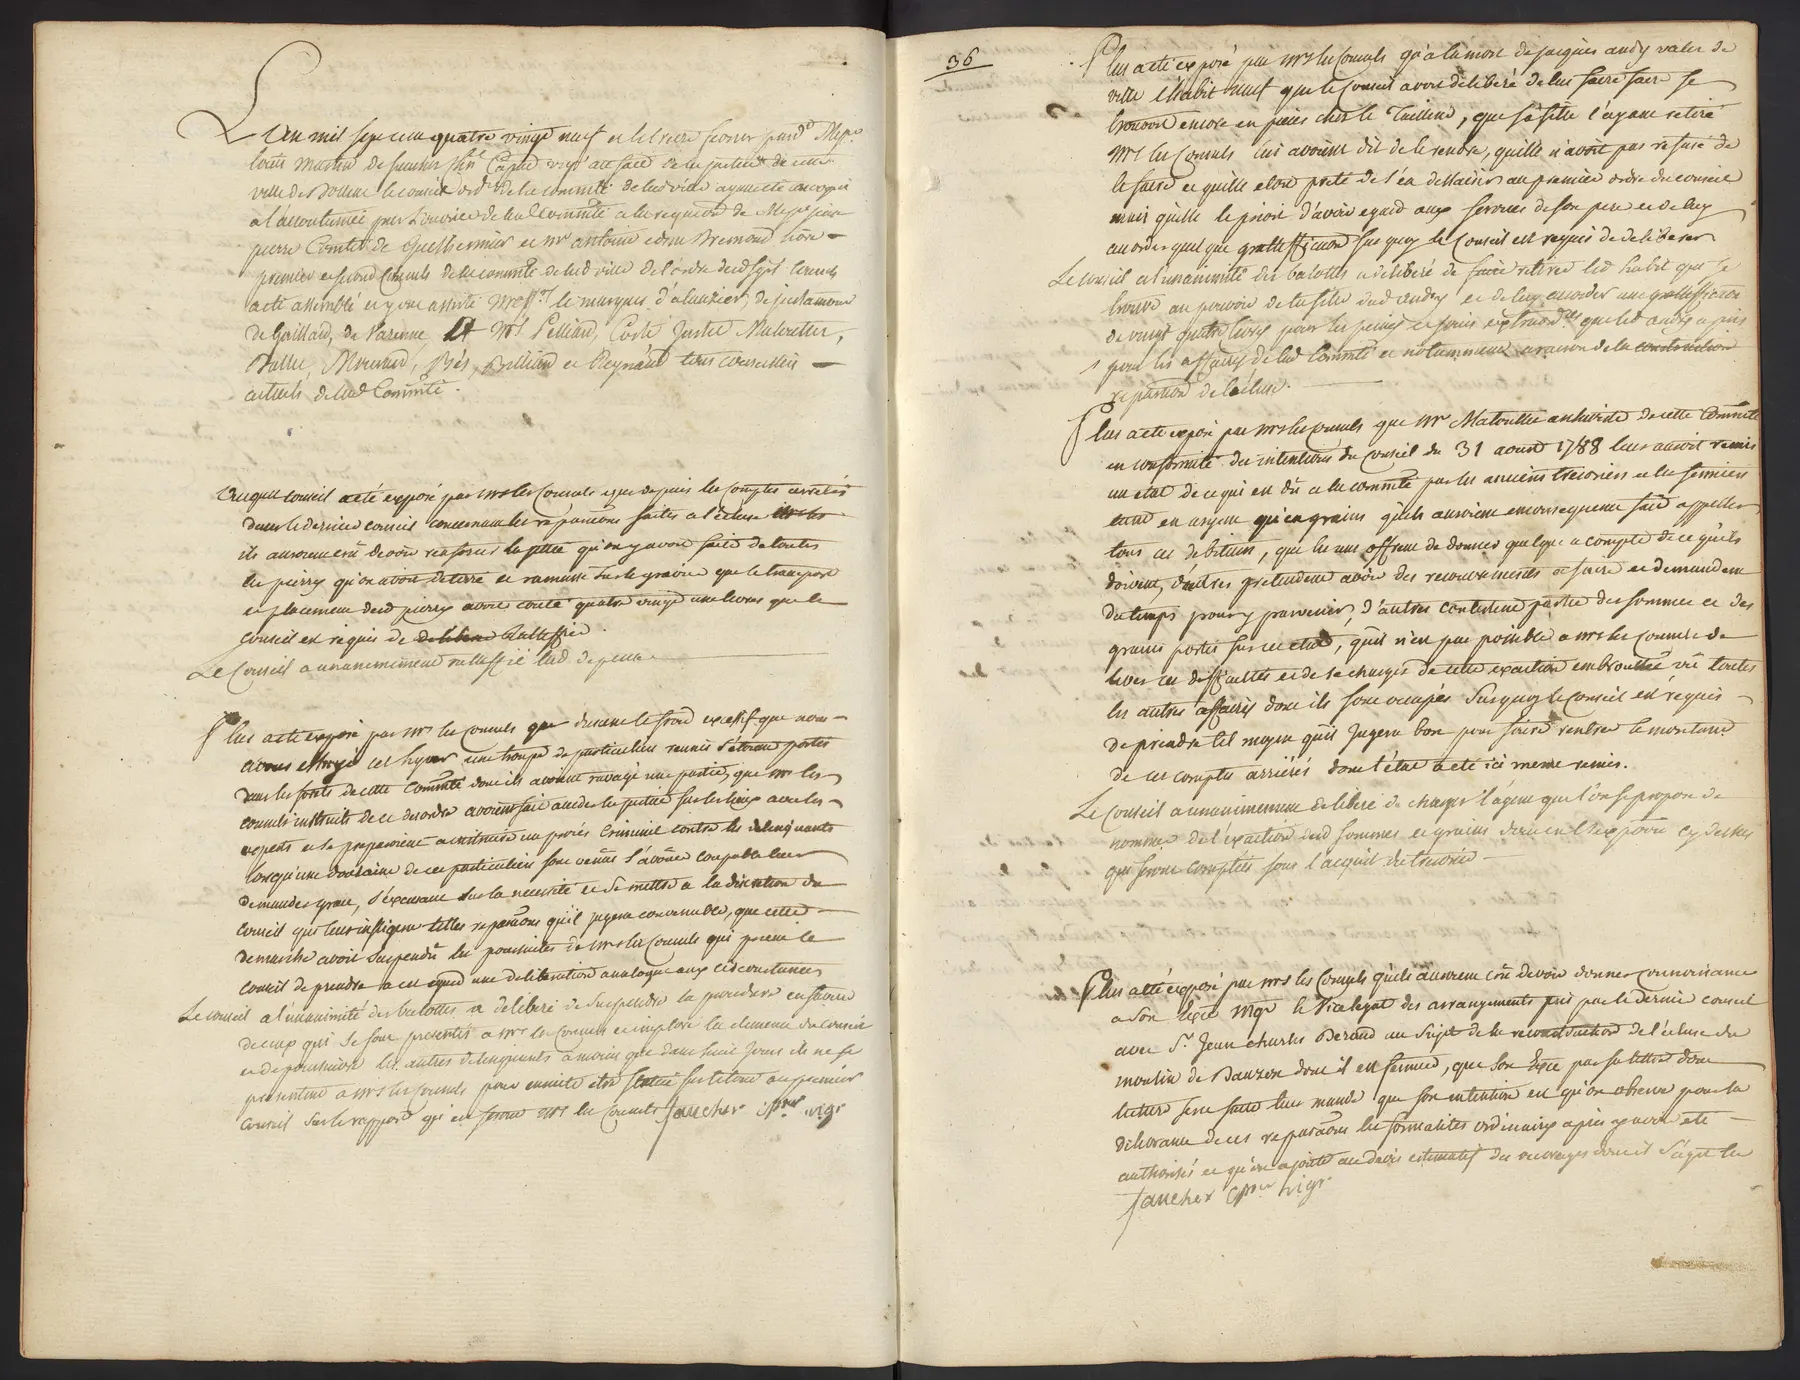 L'an mil sept cent quatre vingt neuf et le treize fevrier pard^t Mess^re
louis martin de faucher Ch^er Capne vig^r au fait de la justice de cette
ville de Bollene le conseil ord^re de la commté de lad ville ayant eté convoqué
a l'accoutumée par l'huissier de lad Commté a la requition de Mess^re jean
pierre Comte de Guilhermier et M^r antoine Bremond
premier et second Consuls de la commté de lad ville led Conseil
acté assemblé et y ont assisté Mess^rs le marquis d'alauzier, de justamond
de Gaillard, de Varenne, et M^rs Pelliard, Coste, Justre Malouttier,
Balle, Monnard, Bés, Brilliard et Reynaud tous conseillers
actuels de lad Commté.
Auquel Conseil a eté exposé par mrs les Consuls que depuis les comptes arretés
dans le dernier conseil concernant les reparations faites a l'ecluse
ils auroient crû devoir renforcer la jettée qu'on y avoit faite de toutes
les pierres qu'on avoit deterré et ramassé sur le gravier que le transport
et placement desd pierres avoit couté quatre vingt une livres que le
Conseil est requis de delibere Rattiffier.
Le Conseil a unanimement rattiffié lad depense
Plus a eté exposé par mrs les consuls que durant le froid excessif que nous
avons essuyé cet hyver une troupe de particuliers reunis s'étoient portés
dans les forets de cette Commté dont ils avoient ravagé une partie, que mrs les
consuls instruits de ce desordre avoient fait acceder la justice sur les lieux avec les
experts et se preparoient a instruire un procés Criminel contre les delinquants
lorsqu'une douzaine de ces particuliers sont venus s'avoüer coupables leur
demander grace, s'excusant sur la necessité et se mettre a la discretion du
Conseil qui leur infligera telles reparations qu'il jugera convenables, que cette
demarche avoit suspendu les poursuites de mrs les Consuls qui prient le
Conseil de prendre a cet égard une deliberation analogue aux circonstances
Le conseil a l'unanimité des balottes a deliberé de suspendre la procedure en faveur
de ceux qui se sont presentés a mrs les Consuls et imploré la clemence du conseil
et de poursuivre les autres delinquants a moins que dans huit jours ils ne se
presentent a mrs les Consuls pour ensuite etre statué sur le tout au premier
Conseil sur le rapport qui en feront mrs les Consuls faucher Cpne vigr
36
Plus a eté exposé par mrs les Consuls qu'a la mort de jacques andy valet de
ville l'habit neuf que le Conseil avoit deliberé de lui faire faire se
trouvoit encore en pieces chez le Tailleur, que sa fille l'ayant retiré
mrs les Consuls lui avoient dit de le rendre, quelle n'avoit pas refusé de
le faire et quelle etoit prete de s'en dessaisir au premier ordre du conseil
mais quelle le prioit d'avoir egard aux services de son pere et de luy
accorder quelque grattiffication sur quoy le Conseil est requis de deliberer
Le Conseil a l'unanimité des balottes a deliberé de faire retirer led habit que se
trouve au pouvoir de la fille dud andy et de luy accorder une grattiffication
de vingt quatre livres pour les peines et soins extraord^res que led andy a pris
pour les affaires de lad Commté et notamment a raison de la construction
reparation de l'écluse.
Plus a eté exposé par mrs les Consuls que mr Malouttier archiviste de cette Commté
en conformité des intentions du Conseil du 31 aoust 1788 leur auroit remis
un etat de ce qui est dû a la commté par les anciens tresoriers et les fermiers
tant en argent qu'en grains qu'ils auroient en consequence fait appeller
tous ces debiteurs, que les uns offrent de donner quelque a compte de ce qu'ils
doivent, d'autres pretendent avoir des recouvrements a faire et demandent
du temps pour y parvenir, d'autres contestent partie des sommes et des
grains portés sur cet etat, qu'il n'est pas possible a mrs les Consuls de
lever ces difficultés et de se charger de cette exaction embrouillée vû toutes
les autres affaires dont ils sont occupés surquoy le Conseil est requis
de prendre tel moyen qu'il jugera bon pour faire rentrer le montant
de ces comptes arriérés dont l'état a eté ici meme remis.
Le Conseil a unanimement deliberé de charger l'agent que l'on se propose de
nommer de l'exaction desd sommes et grains dont en l'exposition cy dessus
qui seront comptées sous l'acquit du tresorier
Plus a eté exposé par mrs les Consuls qu'ils auroient crû devoir donner connoissance
a Son Exce Mgr le Vicelegat des arrangements pris par le dernier conseil
avec S^r Jean charles Berard au sujet de la reconstruction de l'écluse du
moulin de Bauzon dont il est fermier, que son Exce par sa lettre dont
lecture sera faite leur mande que son intention est qu'on observe pour la
delivrance de ces reparations les formalités ordinaires apres y avoir eté
authorisés et qu'on ajoute au devis estimatif des ouvrages dont il s'agit les
faucher Cpne vigr